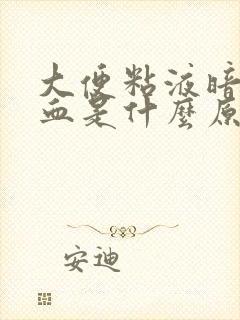 大便粘液暗
血是什麼原
安迪